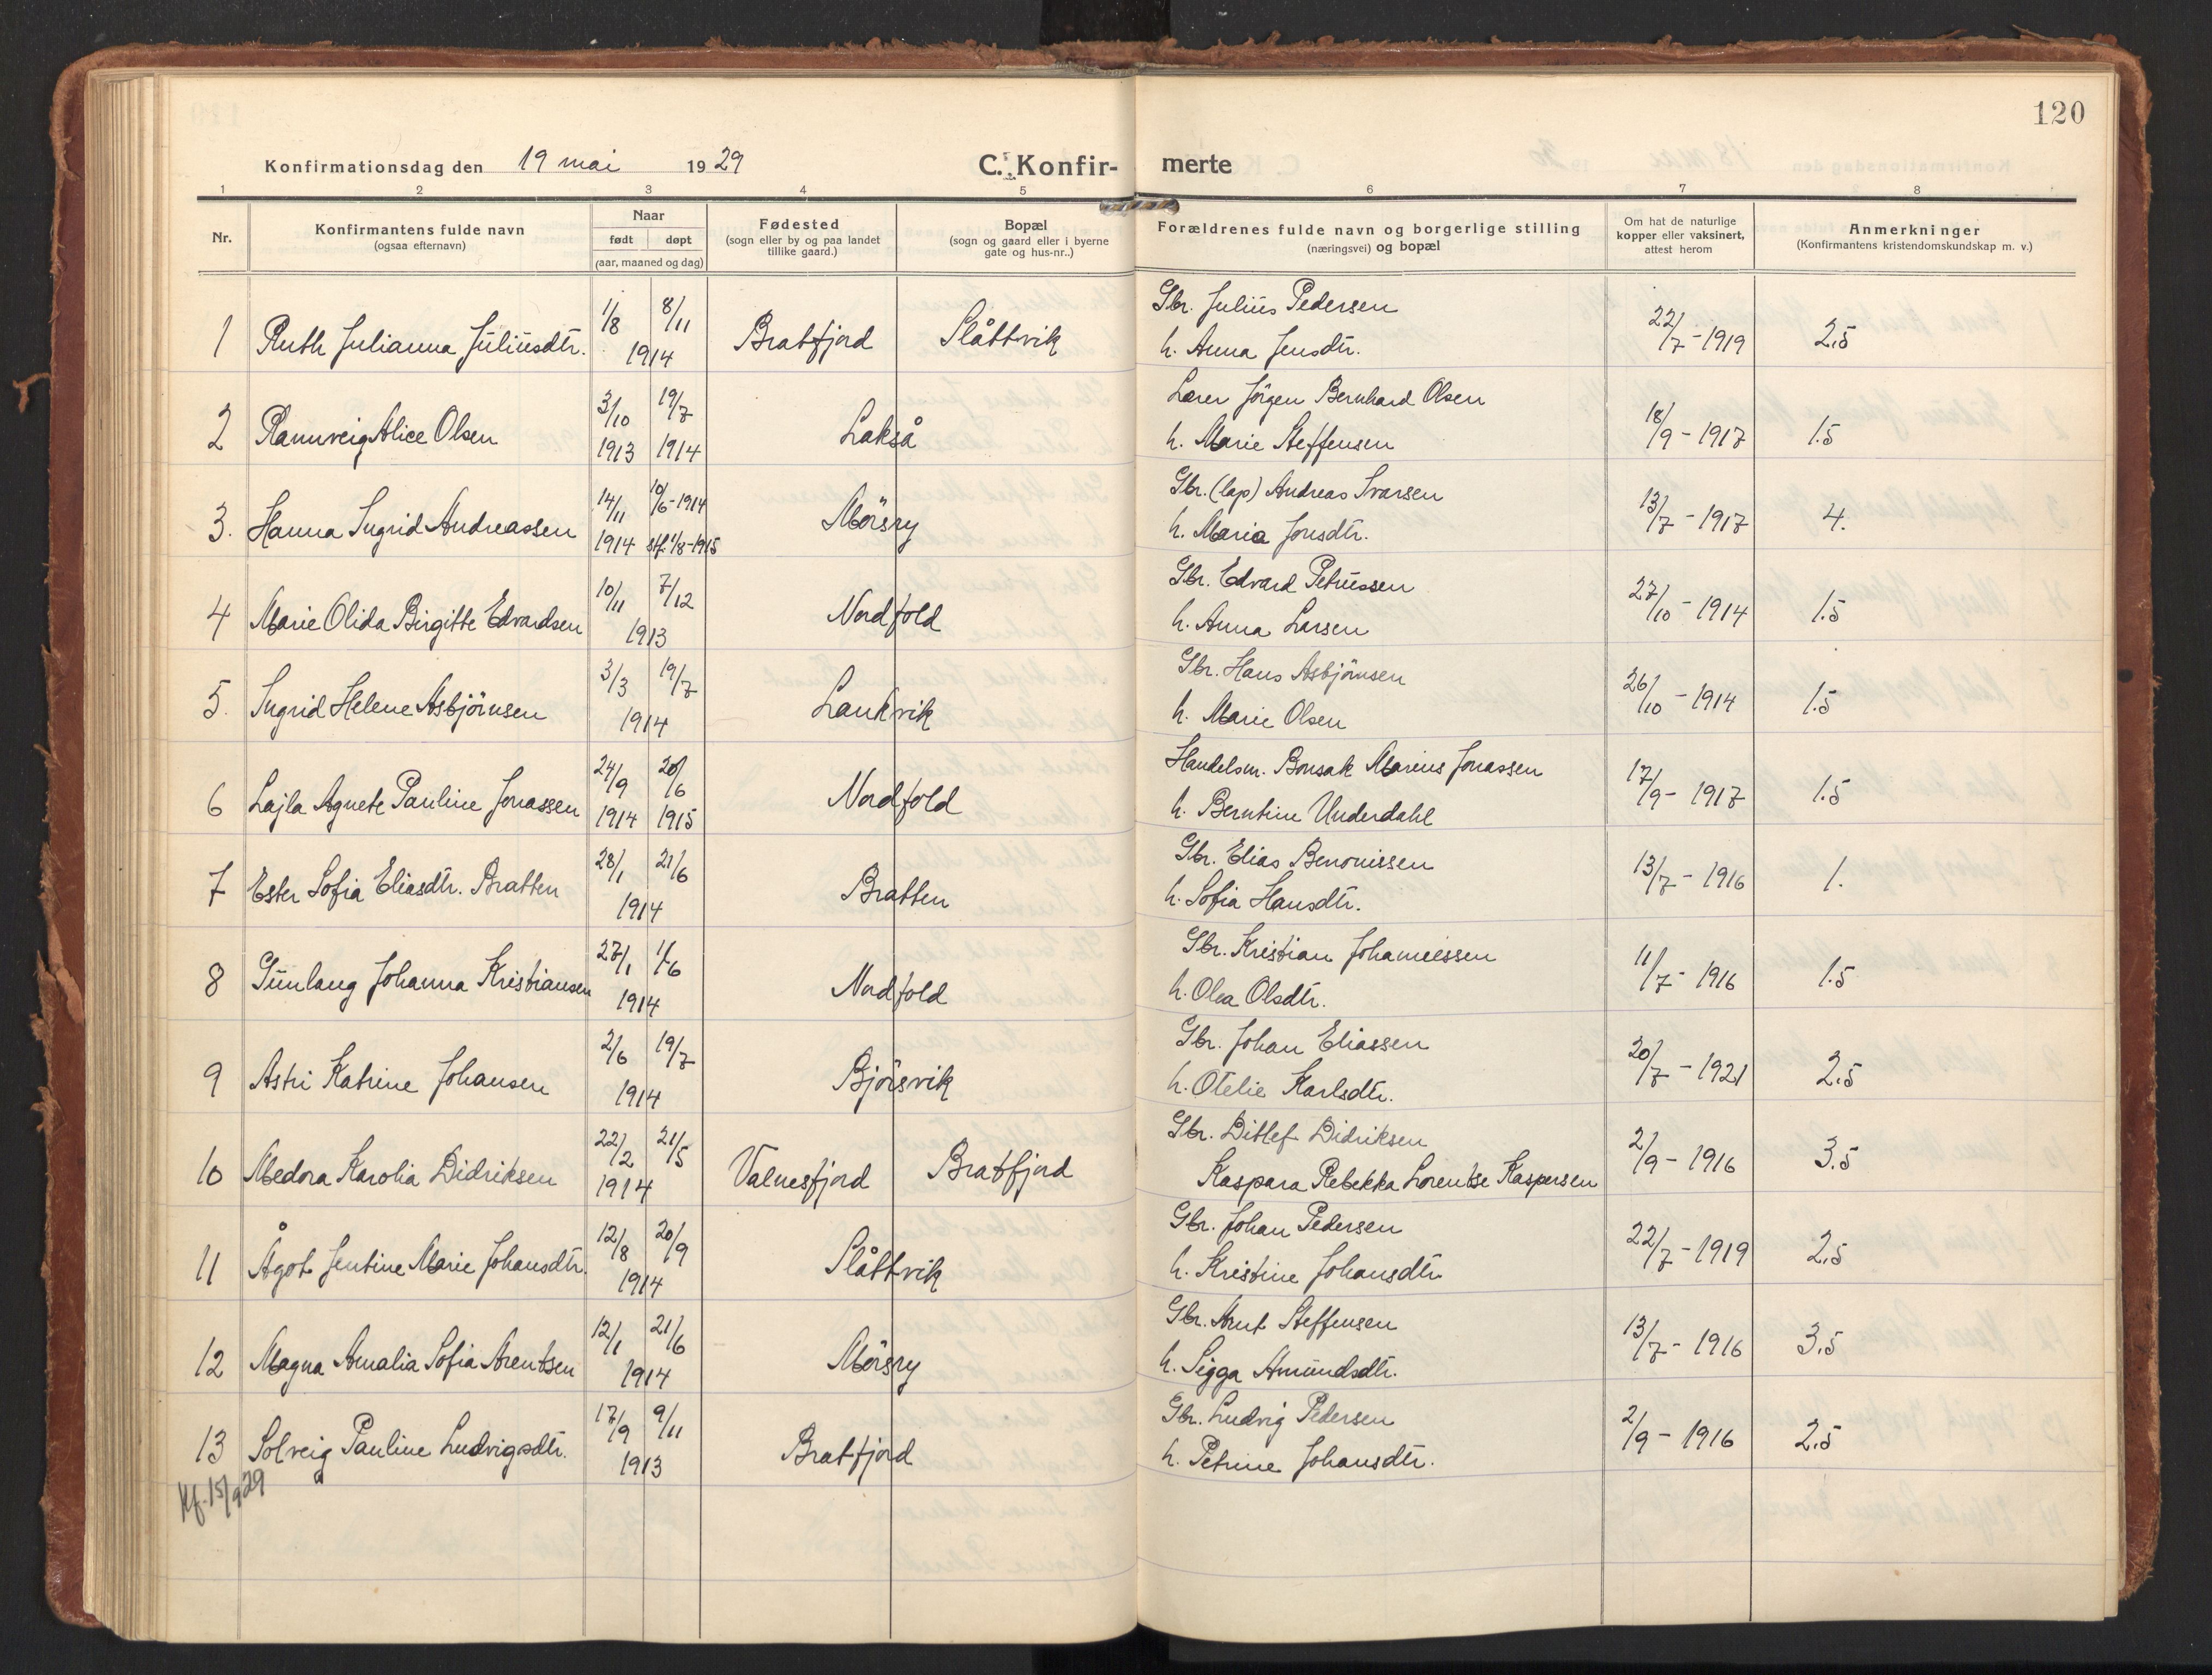 120
Konfirmationsdag den 19 mai 1929 C. Konfir- merte
1 2 3 4 5 6 7 8
Nr.
Konfirmantens fulde navn
(ogsaa efternavn)
Naar
født døpt
(aar, maaned og dag)
Fødested
(sogn eller by og paa landet
tillike gaard.)
Bopæl
(sogn og gaard eller i byerne
gate og hus-nr..)
Forældrenes fulde navn og borgerlige stilling
(næringsvei) og bopæl
Om hat de naturlige
kopper eller vaksinert,
attest herom
Anmerkninger
(Konfirmantens kristendomskundskap m. v.)
1 Ruth Julianna Juliusdtr. 1/8 8/11 1914 Bratfjord Slåttvik Gbr. Julius Pedersen
h. Anna Jensdtr. 22/7-1919 2,5
2 Rannveig Alice Olsen 3/10 1913 19/7 1914 Lakså Lærer Jörgen Bernhard Olsen
h. Marie Steffensen 18/9-1917 1.5
3. Hanna Ingrid Andreassen 14/11 1914 10/6-1914 stf. 1/8-1915 Mörsry Gbr. (lap) Andreas Ivarsen
h. Maria Jonsdtr. 13/7-1917 4.
4 Marie Olida Birgitte Edvardsen 10/11 7/12 1913 Nordfold Gbr. Edvard Petrussen
h. Anna Larsen 27/10-1914 1.5
5. Ingrid Helene Asbjörnsen 3/3 19/7 1914 Lankvik Gbr. Hans Asbjörnsen
h. Marie Olsen 26/10-1914 1.5
6 Lajla Agnete Pauline Jonassen 24/9 1914 20/6 1915 Nordfold Handelsm. Bonsak Marius Jonassen
h. Berntine Underdahl 17/9-1917 1.5
7 Ester Sofia Eliasdtr. Bratten 28/1 21/6 1914 Bratten Gbr. Elias Benonissen
h. Sofia Hansdtr. 13/7-1916 1.
8 Gunlaug Johanna Kristiansen 27/1 1/6 1914 Nordfold Gbr. Kristian Johannessen
h. Olea Olsdtr. 11/7-1916 1.5
9 Astri Katrine Johansen 2/6 19/7 1914 Björsvik Gbr. Johan Eliassen
h. Otelie Karlsdtr. 20/7-1921 2.5
10 Medora Karolia Didriksen 22/2 21/5 1914 Valnesfjord Bratfjord Gbr. Ditlef Didriksen
Kaspara Rebekka Lorentse Kaspersen 2/9-1916 3.5
11 Ågot Jentine Marie Johansdtr. 12/8 20/9 1914 Slåttvik Gbr. Johan Pedersen
h. Kristine Johansdtr 22/7-1919 2,5
12 Magna Amalia Sofia Arentsen 12/1 21/6 1914 Mörsry Gbr. Arnt Steffensen
h. Sigga Amundsdtr. 13/7-1916 3,5
13 Solveig Pauline Ludvigsdtr. 17/9 9/11 1913 Bratfjord Gbr. Ludvig Pedersen
h. Petrine Johansdtr. 2/9-1916 2,5
Kf. 15/9 29